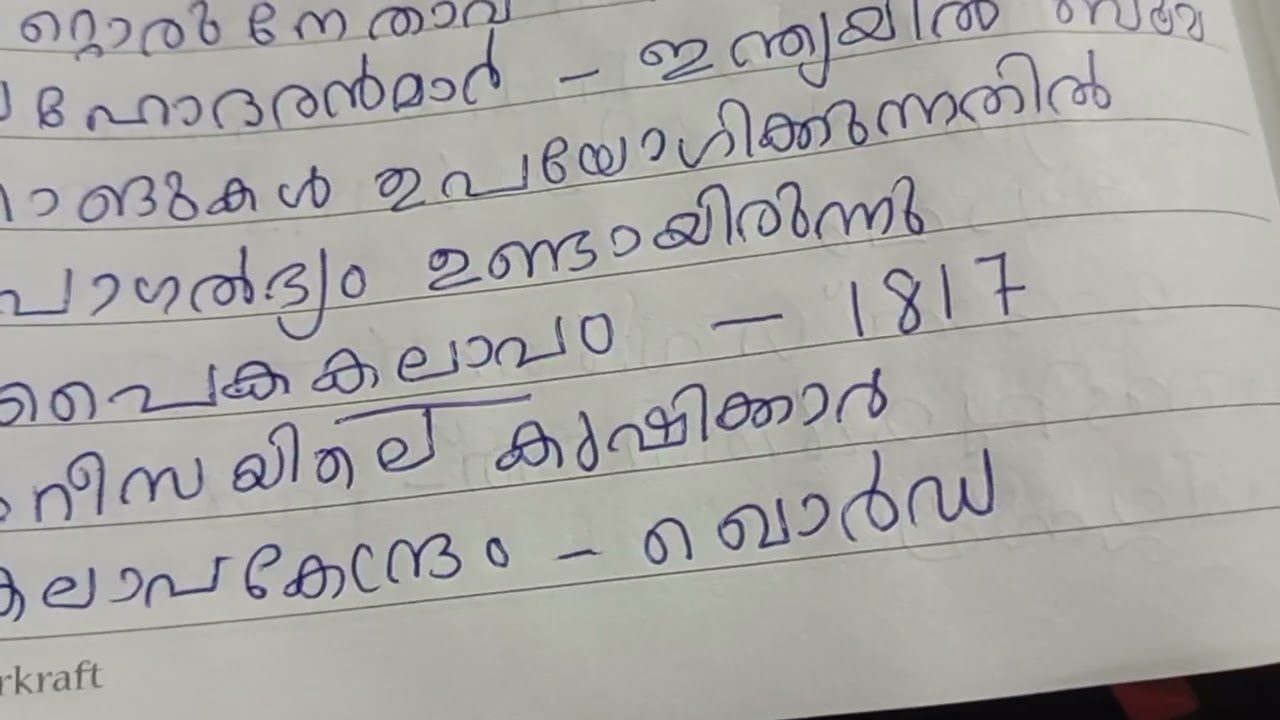 റ്റൊരു നേതാവ്
ഹോദരൻമാർ - ഇന്ത്യയിൽ
ണ്ടുകൾ ഉപയോഗിക്കുന്നതിൽ
പാഗൽഭ്യം ഉണ്ടായിരുന്നു
പൈക കലാപം - 1817
റീസയിലെ കൃഷിക്കാർ
കലാപകേന്ദ്രം - ഖോർഡ
rkraft